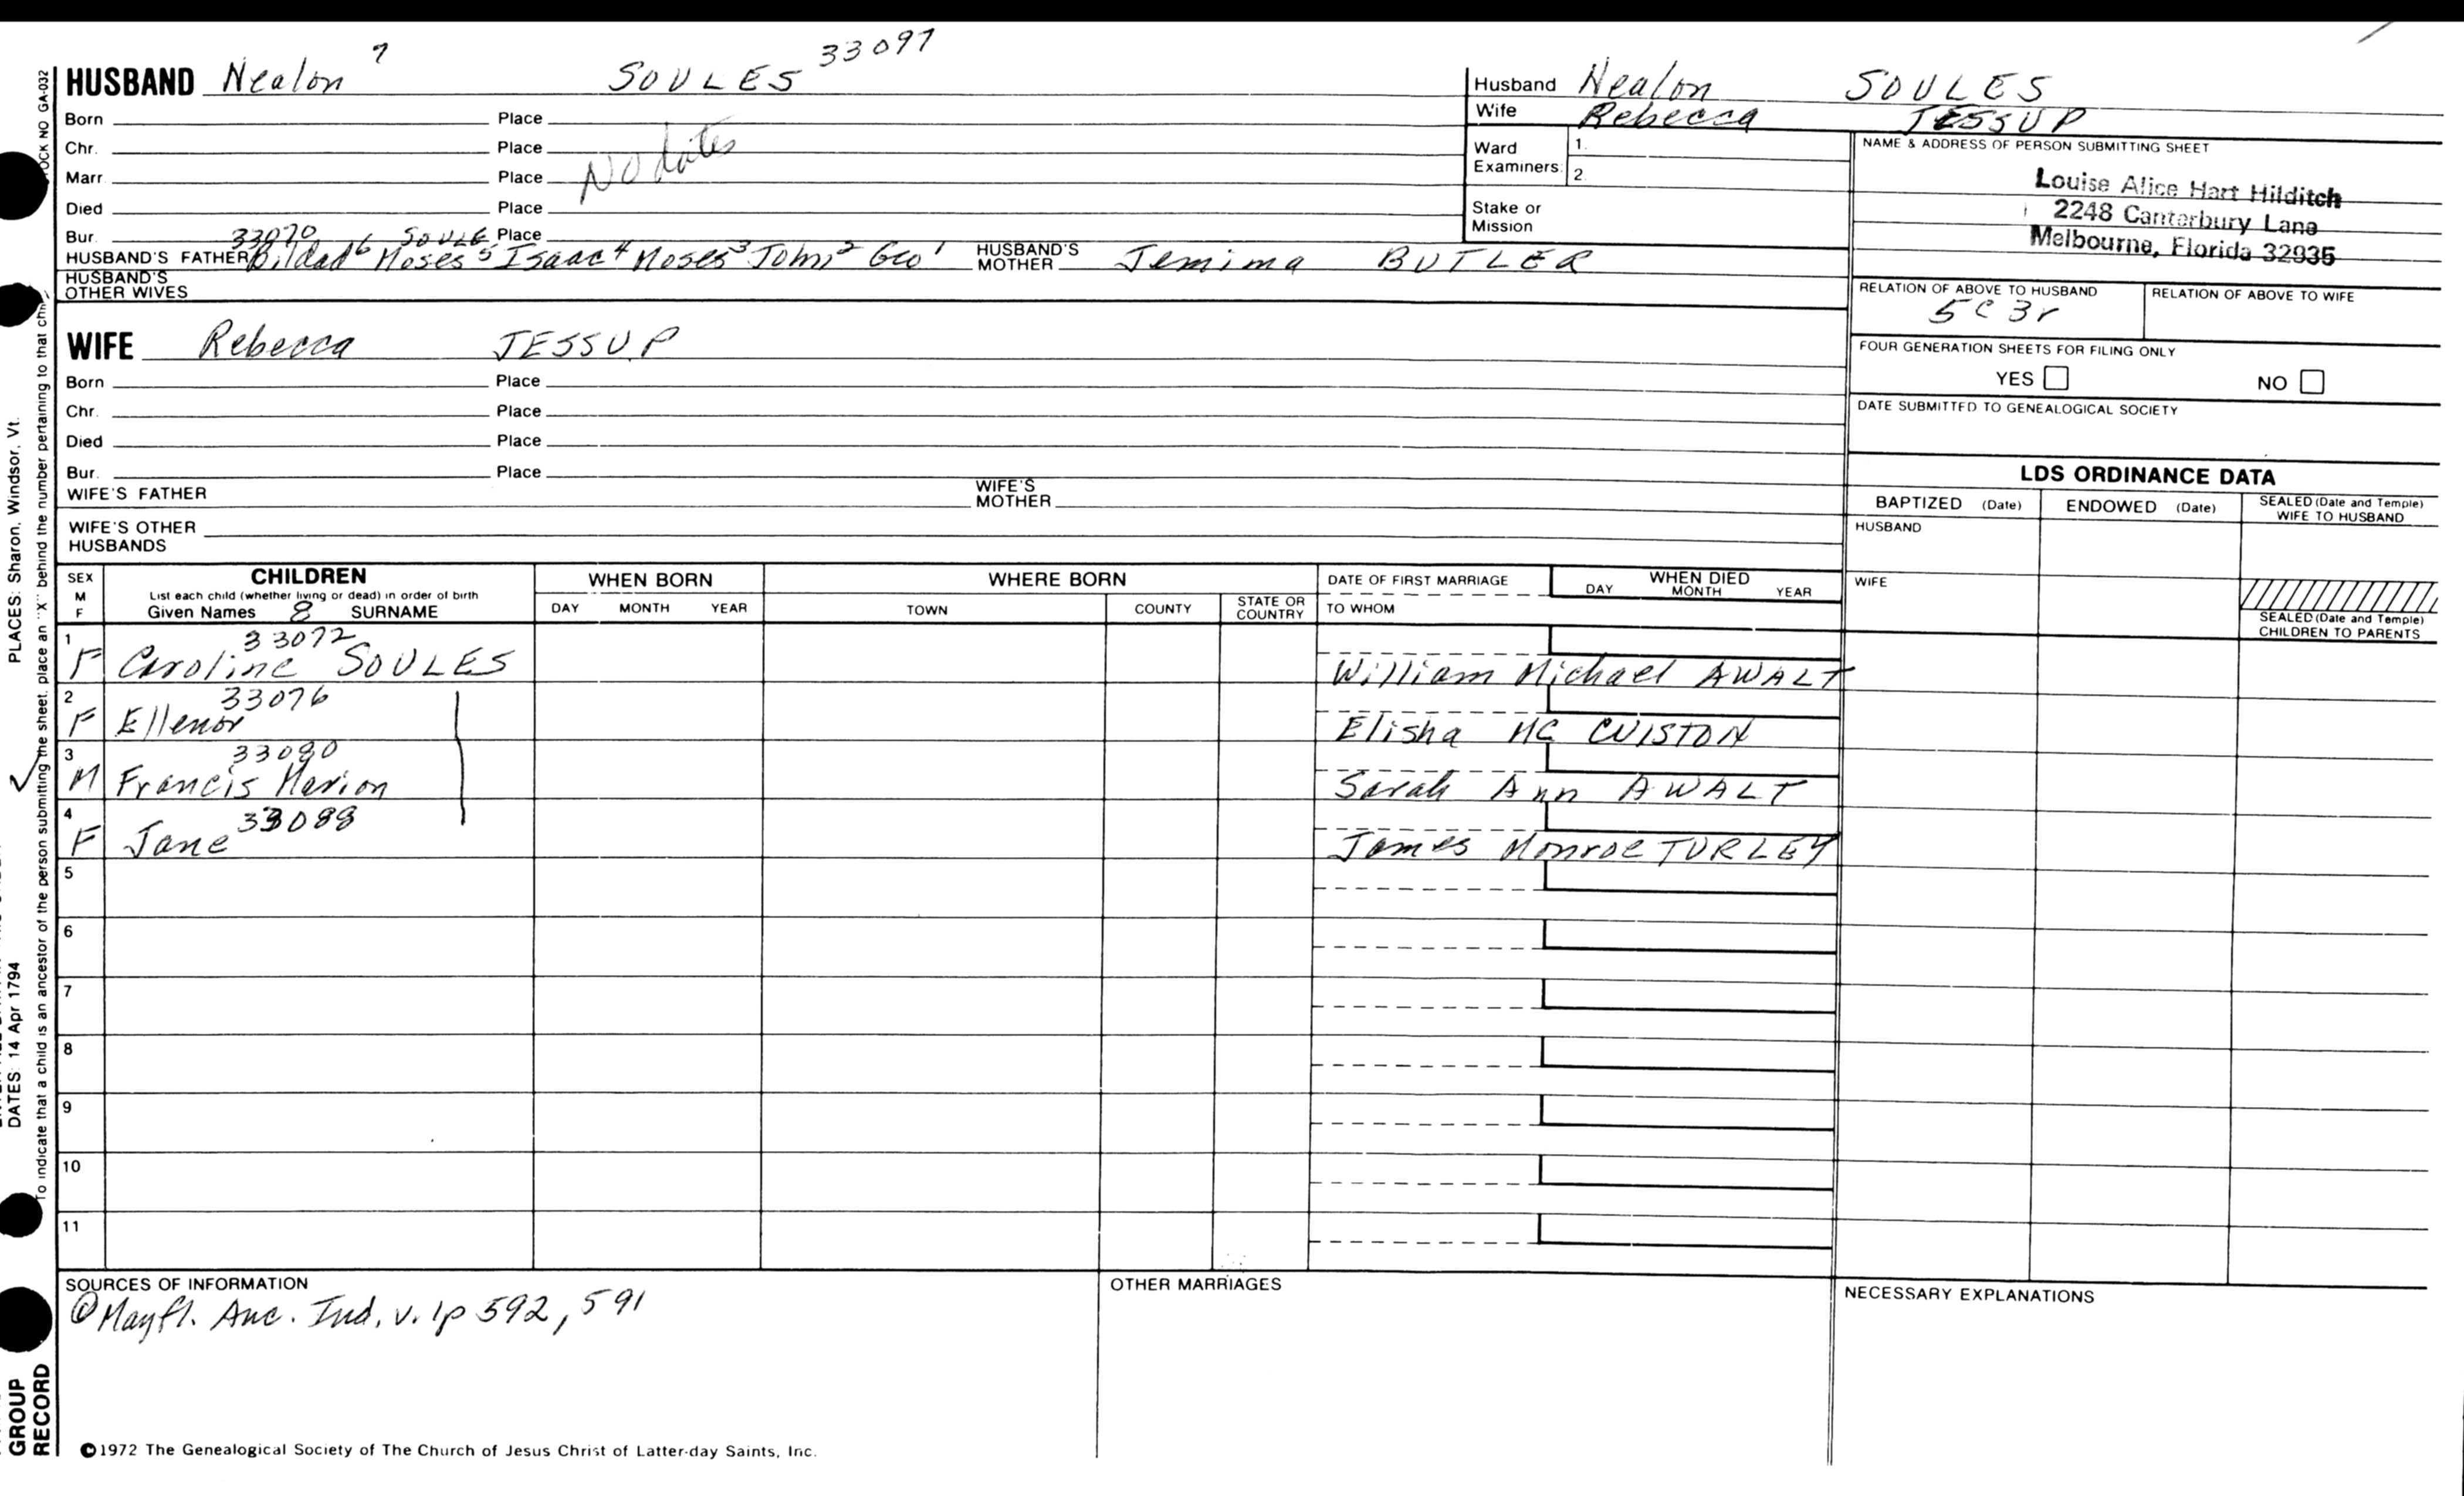 HUSBAND Nealon 7 SOULES 33097
Born Place
Chr. Place
Marr. Place No dates
Died Place
Bur. Place
33070 SOULE
HUSBAND'S FATHER Bildad 6 Moses 5 Isaac 4 Moses 3 John 2 Geo 1 HUSBAND'S MOTHER Jemima BUTLER
HUSBAND'S OTHER WIVES
WIFE Rebecca JESSUP
Born Place
Chr. Place
Died Place
Bur. Place
WIFE'S FATHER WIFE'S MOTHER
WIFE'S OTHER HUSBANDS
Husband Nealon SOULES
Wife Rebecca JESSUP
Ward Examiners: 1. 2.
Stake or Mission
NAME & ADDRESS OF PERSON SUBMITTING SHEET
Louise Alice Hart Hilditch
2248 Canterbury Lane
Melbourne, Florida 32935
RELATION OF ABOVE TO HUSBAND RELATION OF ABOVE TO WIFE
5C 3r
FOUR GENERATION SHEETS FOR FILING ONLY
YES NO
DATE SUBMITTED TO GENEALOGICAL SOCIETY
LDS ORDINANCE DATA
BAPTIZED (Date) ENDOWED (Date) SEALED (Date and Temple) WIFE TO HUSBAND
HUSBAND
WIFE
SEALED (Date and Temple) CHILDREN TO PARENTS
SEX M F CHILDREN WHEN BORN WHERE BORN DATE OF FIRST MARRIAGE WHEN DIED
List each child (whether living or dead) in order of birth
Given Names 8 SURNAME DAY MONTH YEAR TOWN COUNTY STATE OR COUNTRY TO WHOM DAY MONTH YEAR
1 33072
F Caroline SOULES William Michael AWALT
2 33076
F Ellenor Elisha MC CUISTON
3 33080
M Francis Marion Sarah Ann AWALT
4 33088
F Jane James Monroe TURLEY
5
6
7
8
9
10
11
SOURCES OF INFORMATION OTHER MARRIAGES NECESSARY EXPLANATIONS
Mayfl. Anc. Ind. v. 1p 592, 591
©1972 The Genealogical Society of The Church of Jesus Christ of Latter-day Saints, Inc.
OCK NO GA-032
To indicate that a child is an ancestor of the person submitting the sheet, place an "X" behind the number pertaining to that
PLACES: Sharon, Windsor, Vt.
DATES: 14 Apr 1794
GROUP
RECORD